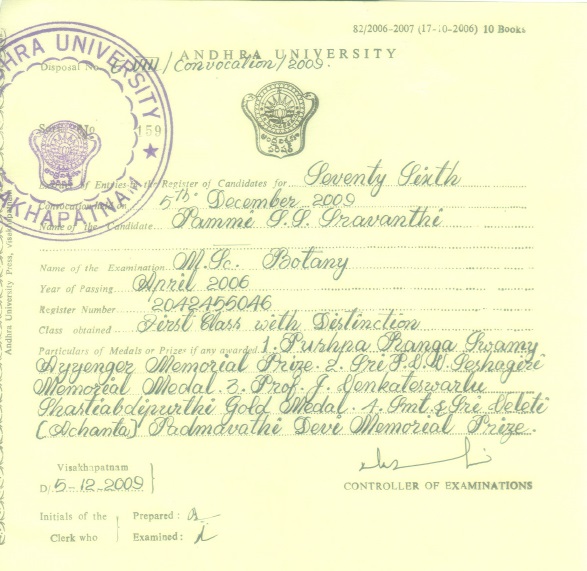 82/2006-2007 (17-10-2006) 10 Books
ANDHRA UNIVERSITY
Disposal No. /Convocation/2009.
ANDHRA UNIVERSITY ★ VISAKHAPATNAM
159
of Entries in the Register of Candidates for Seventy Sixth
Convocation 5th December 2009
Name of the Candidate Pammi S.S. Sravanthi
Name of the Examination M.Sc. Botany
Year of Passing April 2006
Register Number 2042455046
Class obtained First Class with Distinction
Particulars of Medals or Prizes if any awarded 1. Pushpa Ranga Swamy
Ayyenger Memorial Prize. 2. Sri P.D.V. Seshagiri
Memorial Medal. 3. Prof. J. Venkateswarlu
Shastiabdipurthi Gold Medal. 4. Smt & Sri Veleti
(Achanta) Padmavathi Devi Memorial Prize.
Andhra University Press, Visakhapatnam
Visakhapatnam
D/ 5-12-2009
CONTROLLER OF EXAMINATIONS
Initials of the Prepared:
Clerk who Examined: